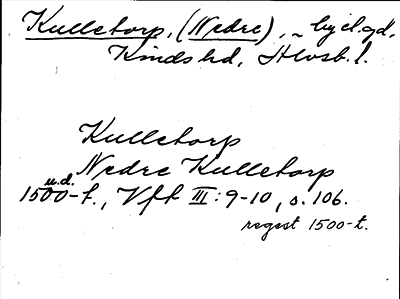 Kulletorp, (Nedre), ~ by el. gd,
Kinds hd, Älvsb. l.
Kulletorp
Nedre Kulletorp
u.d.
1500-t., Vft III: 9-10, s. 106.
regest 1500-t.